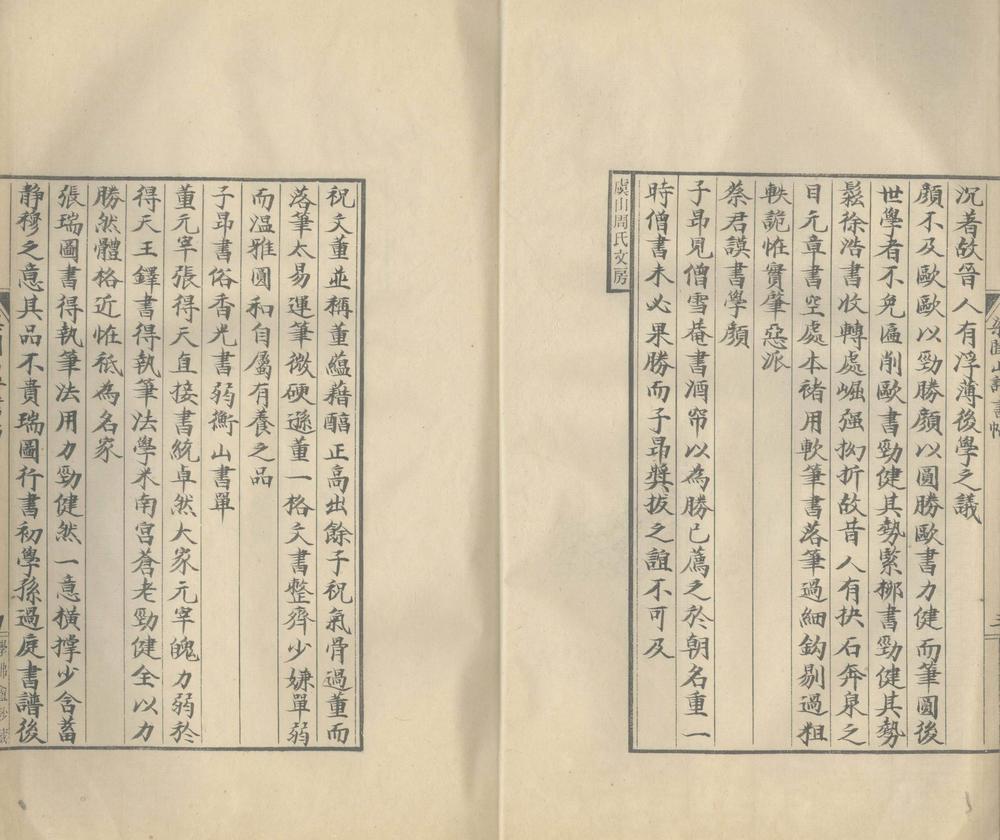 沉著故晉人有浮薄後學之議
顏不及歐歐以勁勝顏以圓勝歐書力健而筆圓後
世學者不免匾削歐書勁健其勢緊栁書勁健其勢
鬆徐浩書收轉處崛强拗折故昔人有抉石奔泉之
目元章書空處本褚用軟筆書落筆過細鈎剔過粗
軼詭恠實肇惡派
蔡君謨書學顏
子昂見僧雪菴書酒帘以為勝已薦之於朝名重一
時僧書未必果勝而子昂奬拔之誼不可及
虞山周氏文房
祝文董並稱董蘊藉醕正高出餘子祝氣骨過董而
落筆太易運筆微硬遜董一格文書整齊少嫌單弱
而温雅圓和自屬有養之品
子昂書俗香光書弱衡山書單
董元宰張得天直接書統卓然大家元宰魄力弱於
得天王鐸書得執筆法學米南宫蒼老勁健全以力
勝然體格近恠秪為名家
張瑞圖書得執筆法用力勁健然一意橫撑少含蓄
静穆之意其品不貴瑞圖行書初學孫過庭書譜後